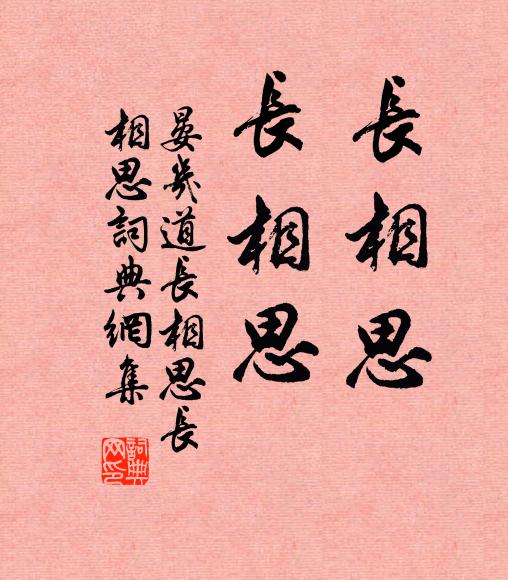 長相思
長相思
晏幾道長相思長
相思詞典網集
詞典
网印